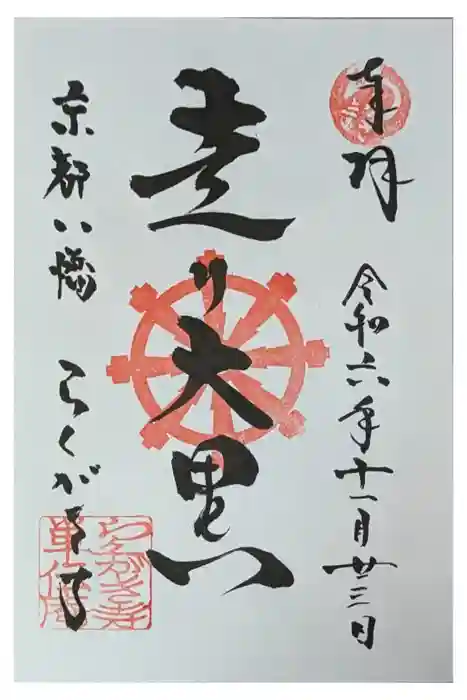 奉拝
令和六年十一月廿三日
走り大黒
京都八幡 らくがき寺
らくがき寺
単伝庵